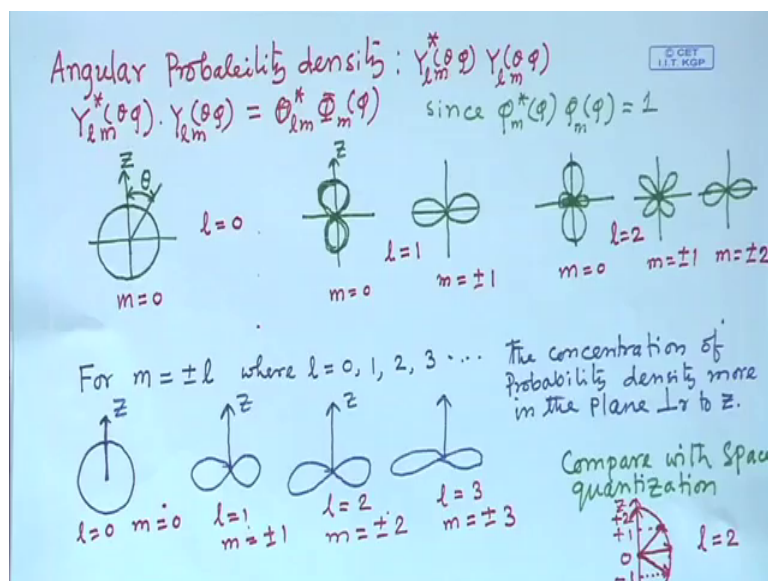 Angular Probability density : Y*ₗₘ(θφ) Yₗₘ(θφ)
© CET
I.I.T. KGP
Y*ₗₘ(θφ). Yₗₘ(θφ) = Θ*ₗₘ Φₘ(φ) since φ*ₘ(φ) φₘ(φ) = 1
Z θ Z
l=0 l=1 l=2
m=0 m=0 m=±1 m=0 m=±1 m=±2
For m = ±l where l = 0, 1, 2, 3 ....
The concentration of
Probability density more
in the plane ⊥r to Z.
Z Z Z
l=0 m=0 l=1 l=2 l=3
m=±1 m=±2 m=±3
Compare with Space
quantization
Z
+2
+1
0 l=2
-1